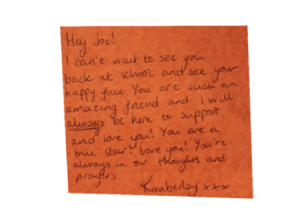 Hey Joe!
I can't wait to see you
back at school and see your
happy face. You are such an
amazing friend and I will
always be here to support
and love you! You are a
true star! Love you! You're
always in our thoughts and
prayers
Kimberley xxx